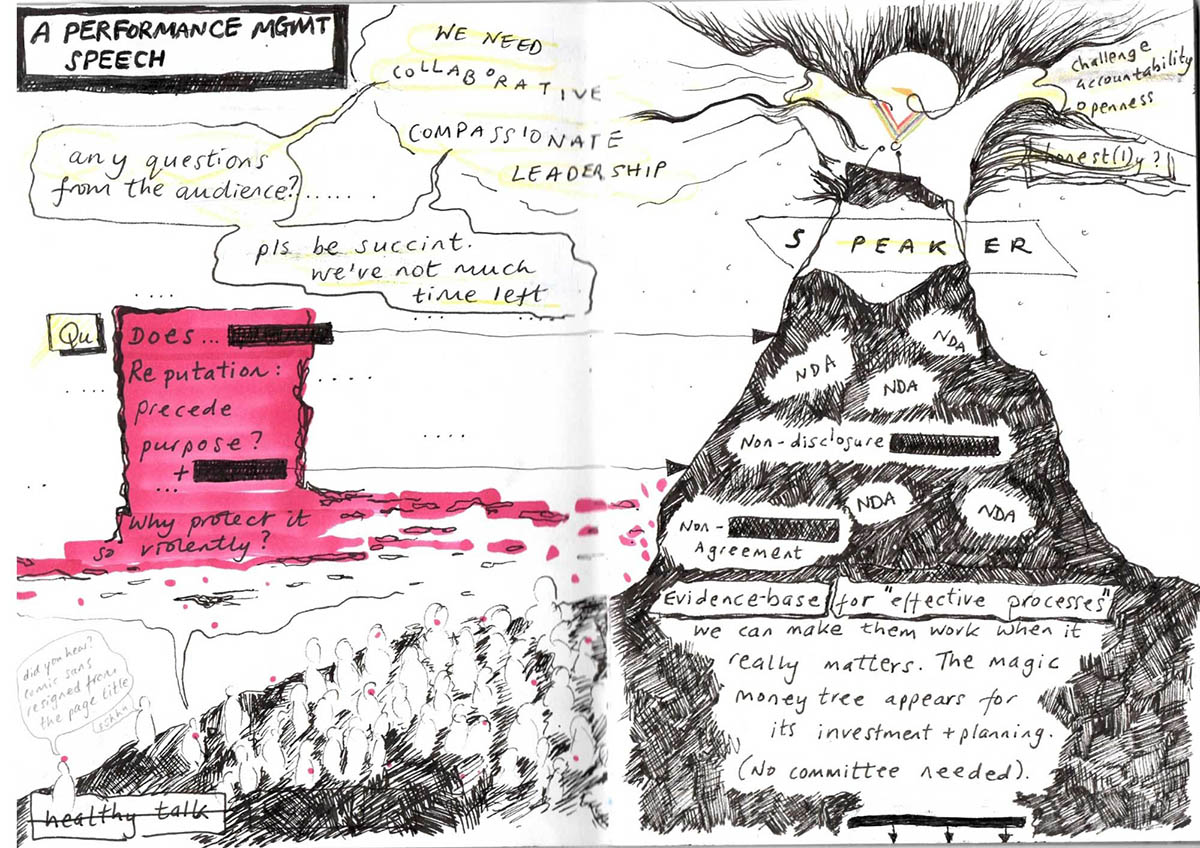 A PERFORMANCE MGMT
SPEECH
WE NEED
COLLABORATIVE
COMPASSIONATE
LEADERSHIP
any questions
from the audience?......
pls be succint.
we've not much
time left
challenge
accountability
openness
honest(l)y?
SPEAKER
Qu
Does...
Reputation:
precede
purpose?
+
...
Why protect it
so violently?
NDA
NDA
NDA
Non-disclosure
NDA
NDA
Non-
Agreement
Evidence-base for "effective processes"
we can make them work when it
really matters. The magic
money tree appears for
its investment + planning.
(No committee needed).
did you hear?
comic sans
resigned from
the page title
healthy talk